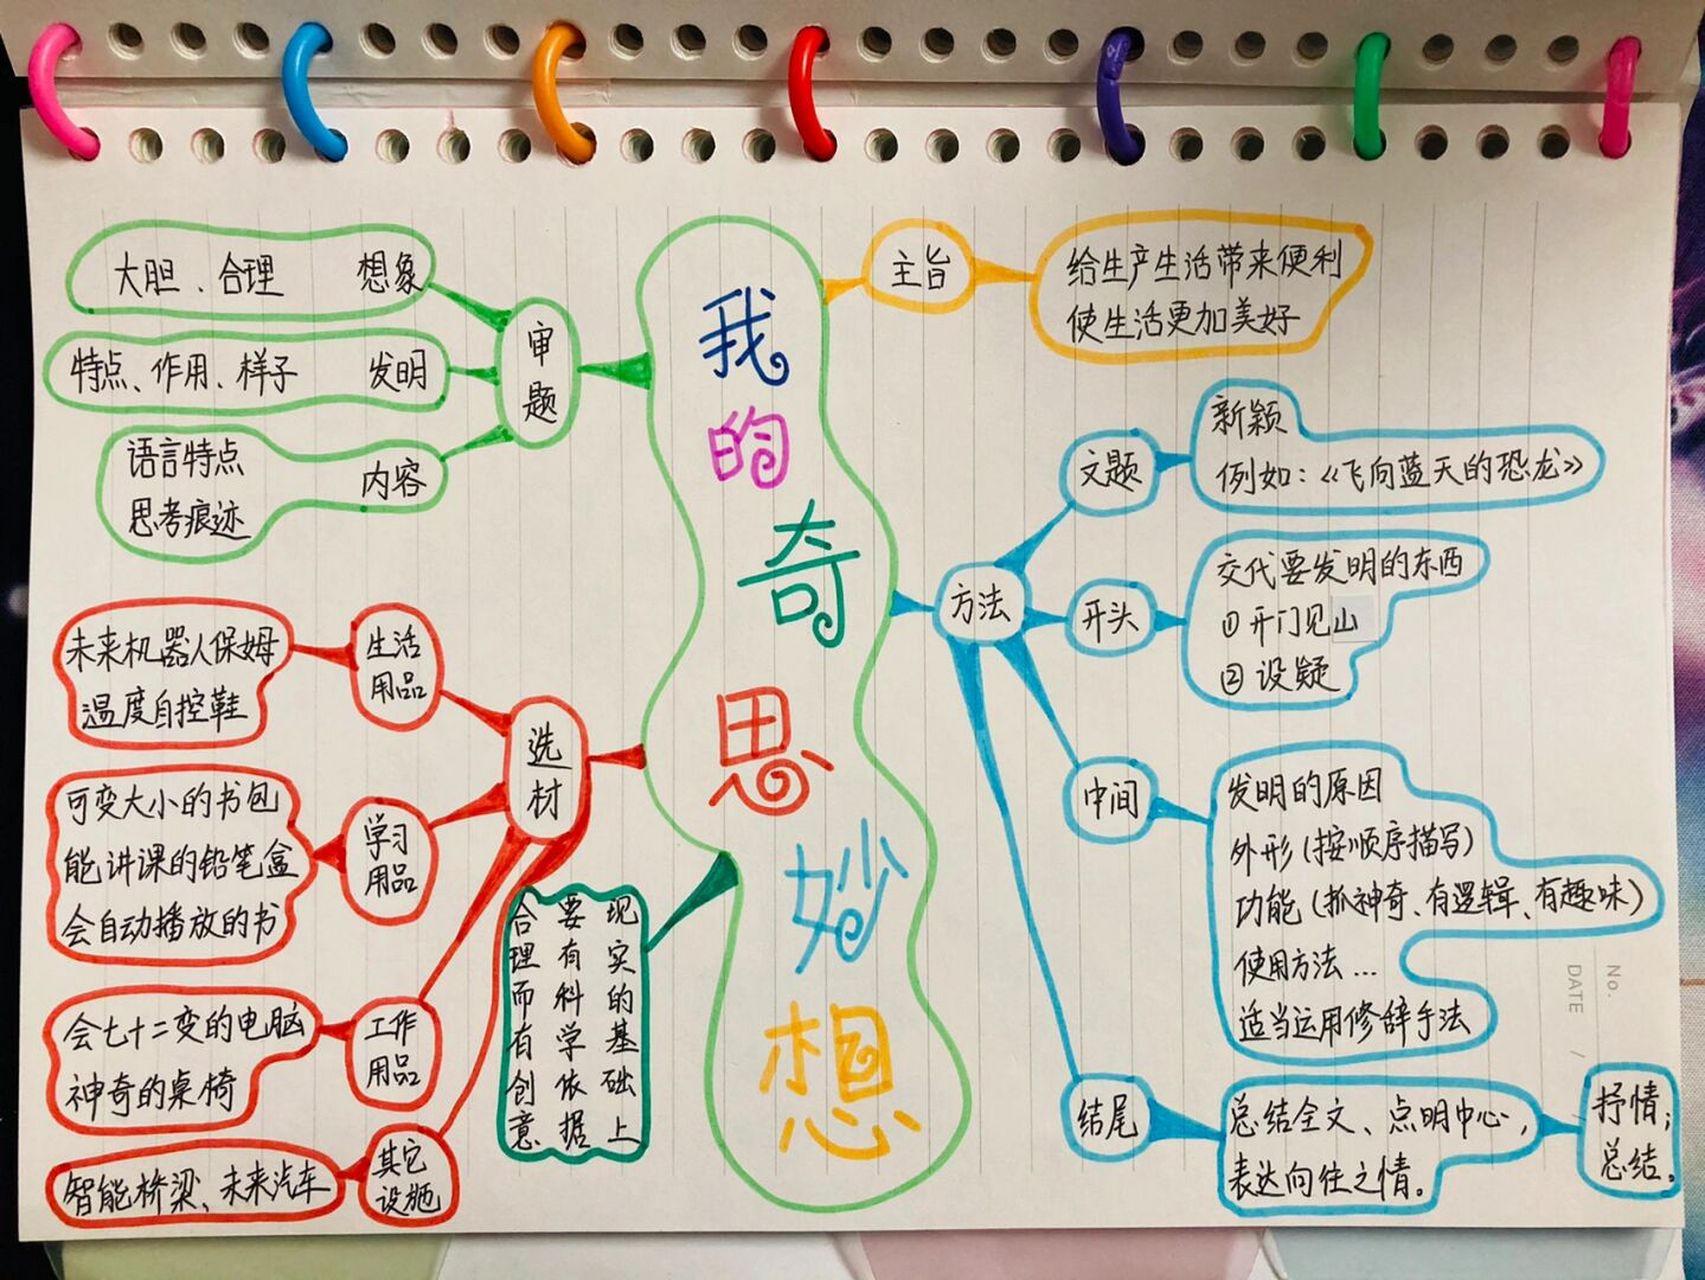 我的奇思妙想
审题
大胆、合理 想象
特点、作用、样子 发明
语言特点
思考痕迹
内容
选材
生活
用品
未来机器人保姆
温度自控鞋
学习
用品
可变大小的书包
能讲课的铅笔盒
会自动播放的书
工作
用品
会七十二变的电脑
神奇的桌椅
其它
设施
智能桥梁、未来汽车
现实的基础上
要有科学依据
合理而有创意
主旨
给生产生活带来便利
使生活更加美好
方法
文题
新颖
例如:《飞向蓝天的恐龙》
开头
交代要发明的东西
①开门见山
②设疑
中间
发明的原因
外形(按顺序描写)
功能(抓神奇、有逻辑、有趣味)
使用方法…
适当运用修辞手法
结尾
总结全文、点明中心,
表达向往之情。
抒情;
总结。
No.
DATE /